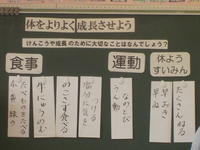 体をよりよく成長させよう
けんこうや成長のために大切なことはなんでしょう?
食事
運動
休よう
すいみん
たくさんねる
早ね
早おき
なわとび
うん動
のこさず食べる
牛にゅうのむ
たべものをたべる